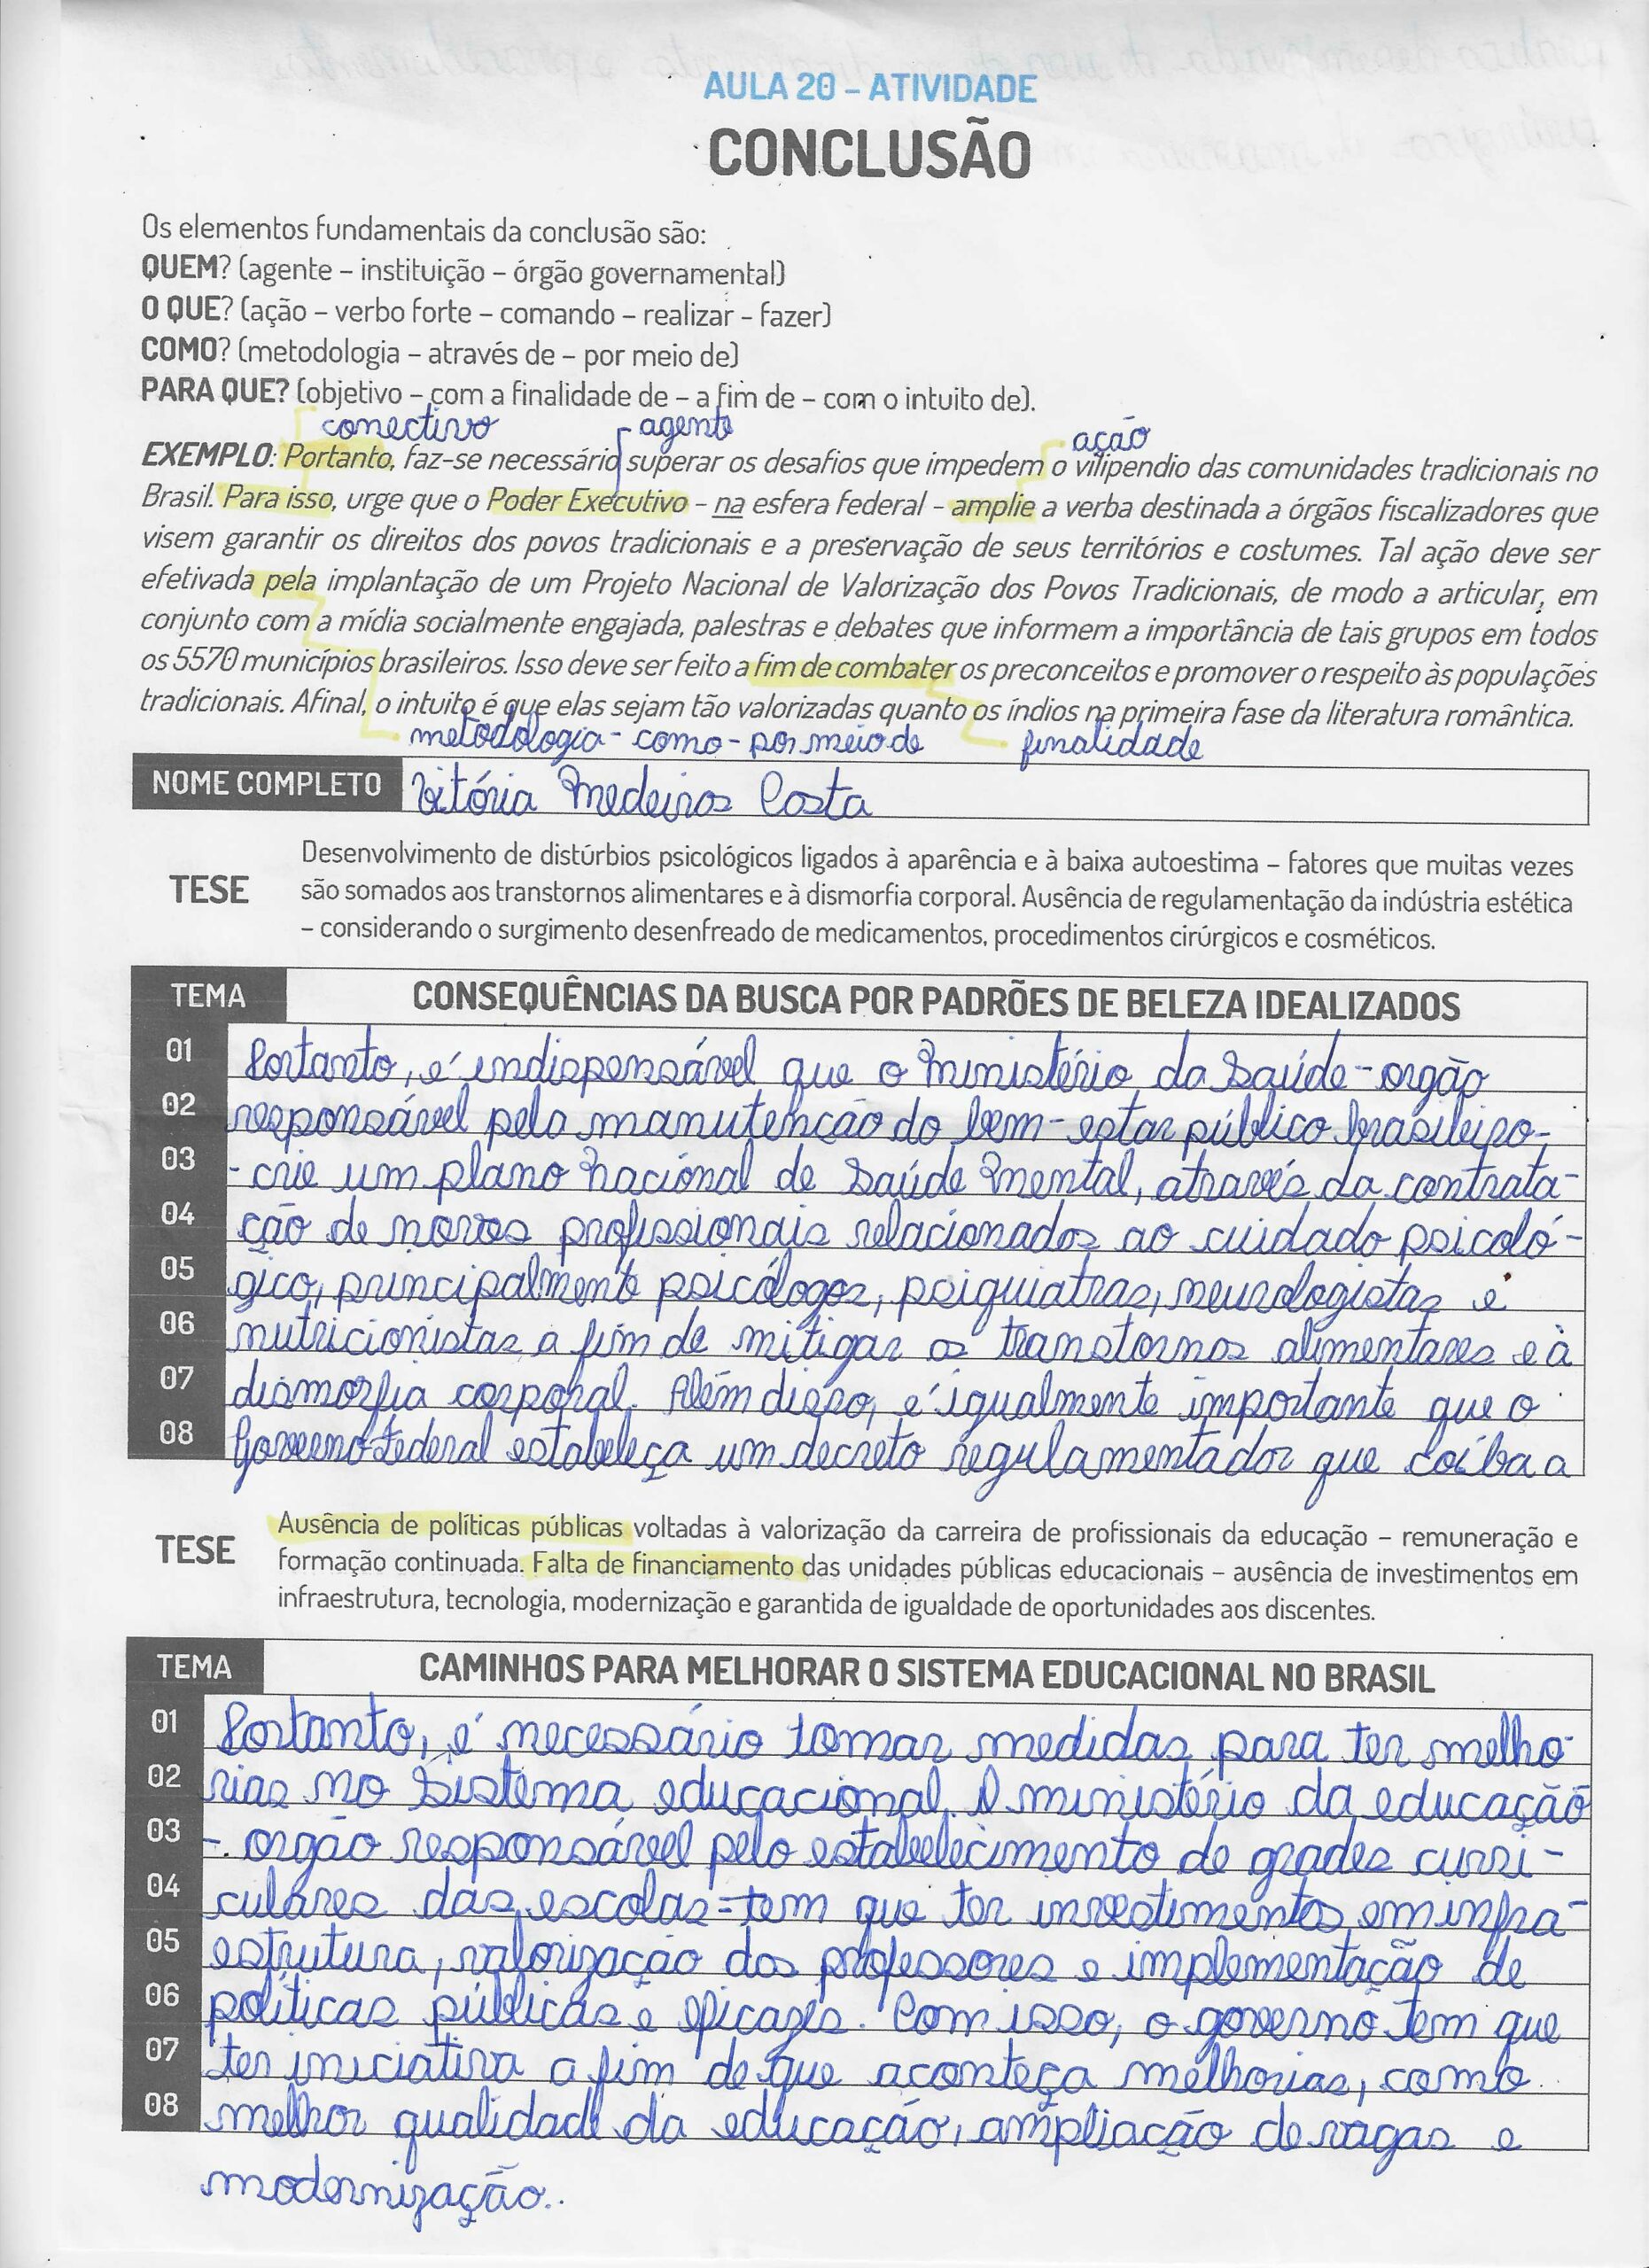 AULA 20 – ATIVIDADE
CONCLUSÃO
Os elementos fundamentais da conclusão são:
QUEM? (agente – instituição – órgão governamental)
O QUE? (ação – verbo forte – comando – realizar – fazer)
COMO? (metodologia – através de – por meio de)
PARA QUE? (objetivo – com a finalidade de – a fim de – com o intuito de).
conectivo agente ação
EXEMPLO: Portanto, faz-se necessário superar os desafios que impedem o vilipendio das comunidades tradicionais no
Brasil. Para isso, urge que o Poder Executivo – na esfera federal – amplie a verba destinada a órgãos fiscalizadores que
visem garantir os direitos dos povos tradicionais e a preservação de seus territórios e costumes. Tal ação deve ser
efetivada pela implantação de um Projeto Nacional de Valorização dos Povos Tradicionais, de modo a articular, em
conjunto com a mídia socialmente engajada, palestras e debates que informem a importância de tais grupos em todos
os 5570 municípios brasileiros. Isso deve ser feito a fim de combater os preconceitos e promover o respeito às populações
tradicionais. Afinal, o intuito é que elas sejam tão valorizadas quanto os índios na primeira fase da literatura romântica.
metodologia - como - por meio de finalidade
NOME COMPLETO Vitória Medeiros Costa
Desenvolvimento de distúrbios psicológicos ligados à aparência e à baixa autoestima – fatores que muitas vezes
TESE são somados aos transtornos alimentares e à dismorfia corporal. Ausência de regulamentação da indústria estética
– considerando o surgimento desenfreado de medicamentos, procedimentos cirúrgicos e cosméticos.
TEMA CONSEQUÊNCIAS DA BUSCA POR PADRÕES DE BELEZA IDEALIZADOS
01 Portanto, é indispensável que o Ministério da Saúde - orgão
02 responsável pela manutenção do bem-estar público brasileiro-
03 - crie um plano Nacional de Saúde Mental, através da contrata-
04 ção de novos profissionais relacionados ao cuidado psicoló-
05 gico, principalmente psicólogos, psiquiatras, neurologistas e
06 nutricionistas a fim de mitigar os transtornos alimentares e à
07 dismorfia corporal. Além disso, é igualmente importante que o
08 Governo Federal estabeleça um decreto regulamentador que coíba a
Ausência de políticas públicas voltadas à valorização da carreira de profissionais da educação – remuneração e
TESE formação continuada. Falta de financiamento das unidades públicas educacionais – ausência de investimentos em
infraestrutura, tecnologia, modernização e garantida de igualdade de oportunidades aos discentes.
TEMA CAMINHOS PARA MELHORAR O SISTEMA EDUCACIONAL NO BRASIL
01 Portanto, é necessário tomar medidas para ter melho-
02 rias no Sistema educacional. O ministério da educação
03 - orgão responsável pelo estabelecimento de grades curri-
04 culares das escolas - tem que ter investimentos em infra-
05 estrutura, valorização dos professores e implementação de
06 políticas públicas e eficazes. Com isso, o governo tem que
07 ter iniciativa a fim de que aconteça melhorias, como
08 melhor qualidade da educação, ampliação de vagas e
modernização.